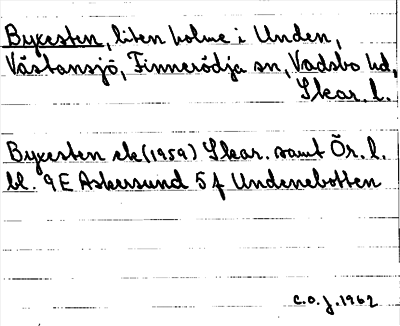 Bykesten, liten holme i Unden,
Västansjö, Finnerödja sn, Vadsbo hd,
Skar. l.
Bykesten ek (1959) Skar. samt Ör. l.
bl. 9E Askersund 5 f Undenebotten
c.o.j. 1962